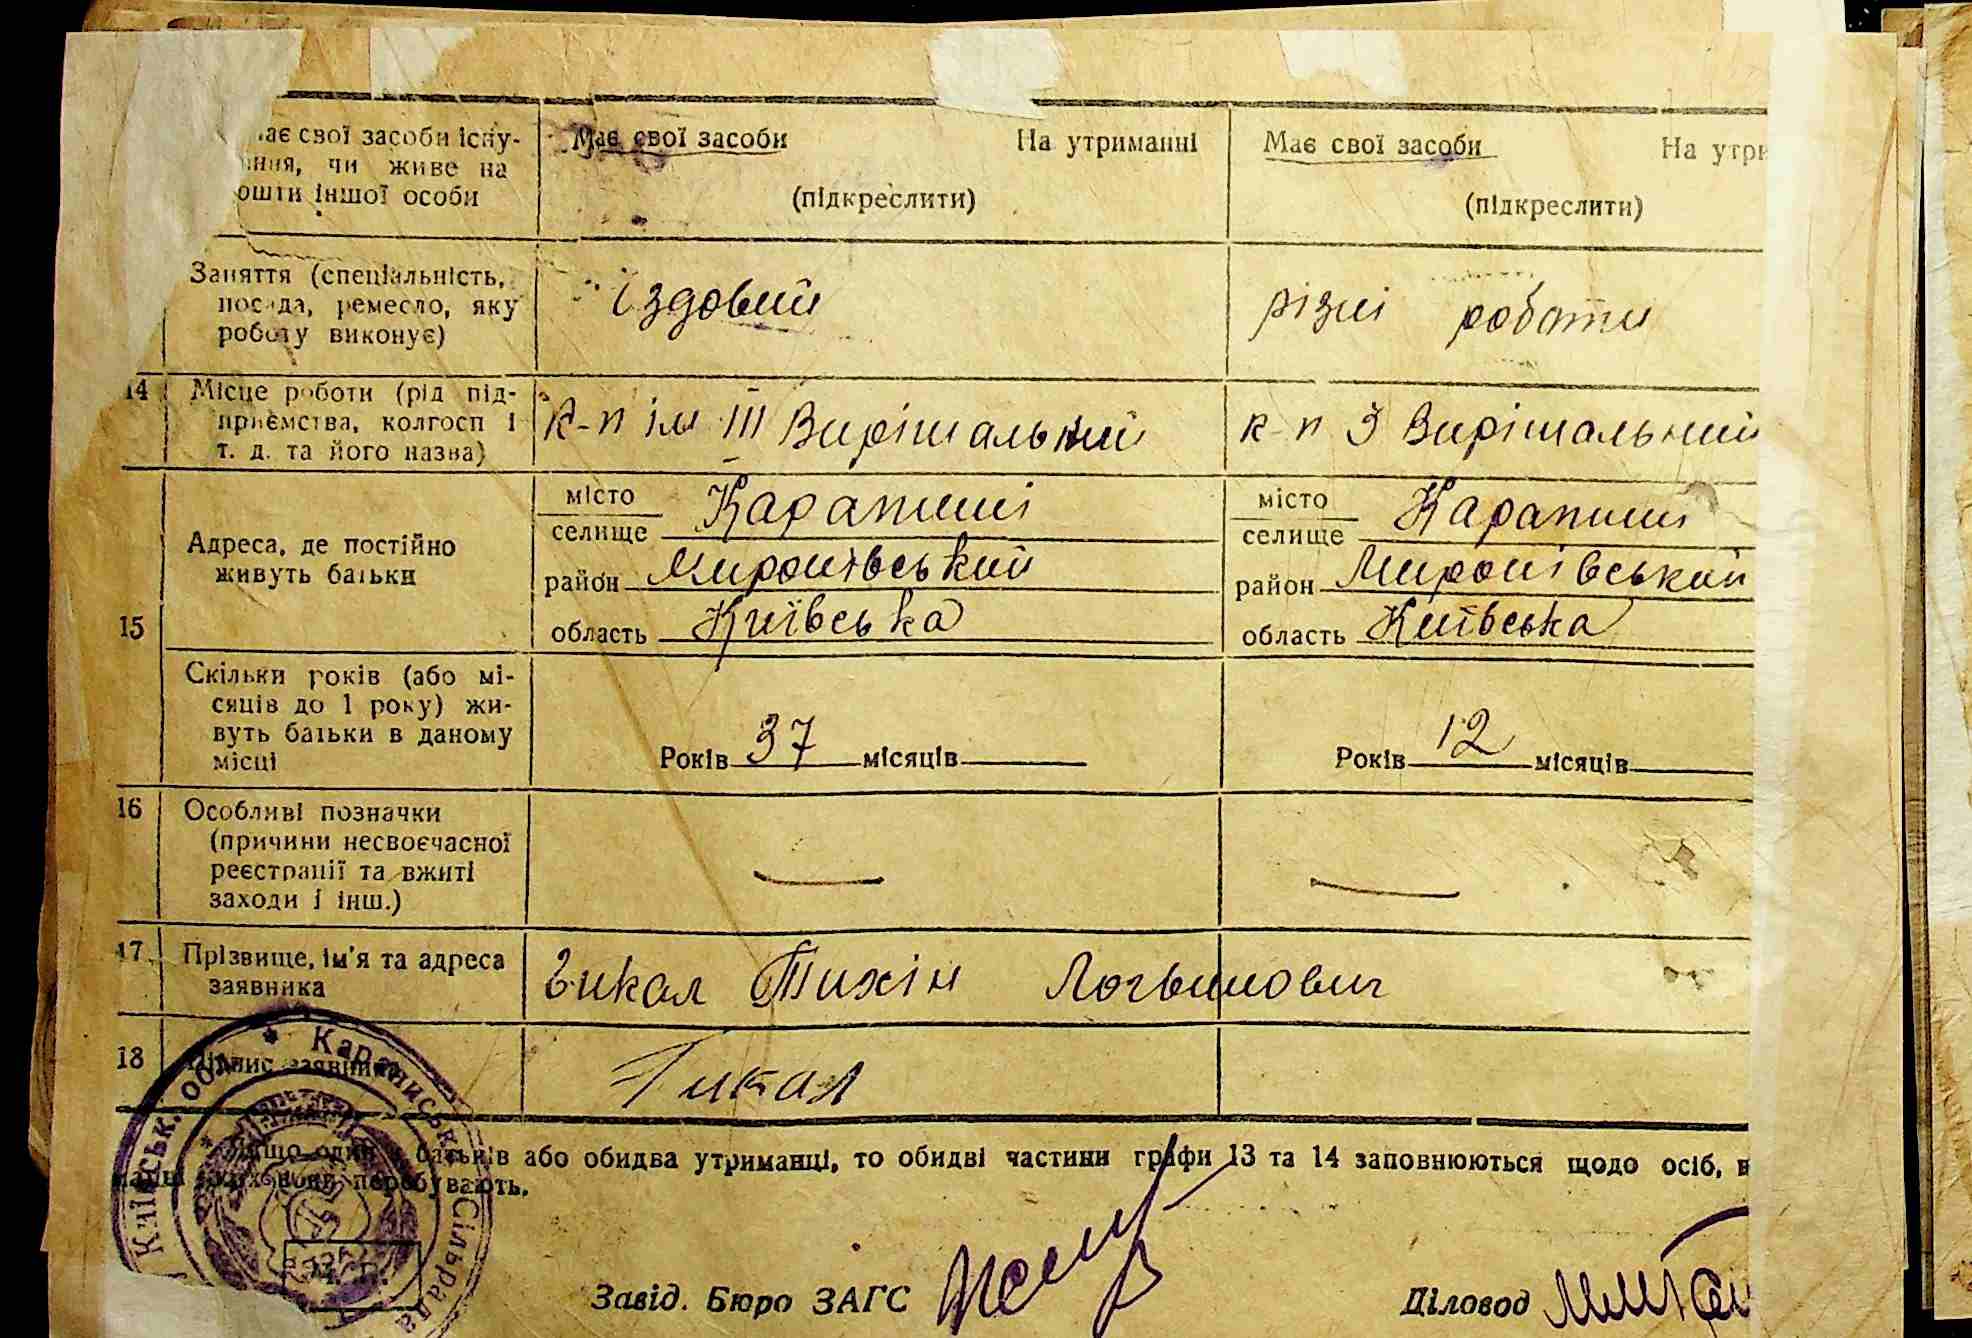 має свої засоби існу- Має свої засоби На утриманні Має свої засоби На утри
ння, чи живе на
ошти іншої особи (підкреслити) (підкреслити)
Заняття (спеціальність, їздовий різні роботи
посада, ремесло, яку
роботу виконує)
14 Місце роботи (рід під- к-п ім III Вирішальний к-п 3 Вирішальний
приємства, колгосп і
т. д. та його назва)
15 Адреса, де постійно живуть батьки
місто
селище Карапиші
район Миронівський
область Київська
місто
селище Карапиші
район Миронівський
область Київська
Скільки років (або мі-
сяців до 1 року) жи-
вуть батьки в даному
місці
Років 37 місяців
Років 12 місяців
16 Особливі позначки
(причини несвоєчасної
реєстрації та вжиті
заходи і інш.)
17 Прізвище, ім'я та адреса Гикал Тихін Логвинович
заявника
18 Підпис заявника Гикал
Якщо один з батьків або обидва утриманці, то обидві частини графи 13 та 14 заповнюються щодо осіб, н
перебувають.
Завід. Бюро ЗАГС Діловод
Київськ. обл. * Караписьк Сільрада
М. П.